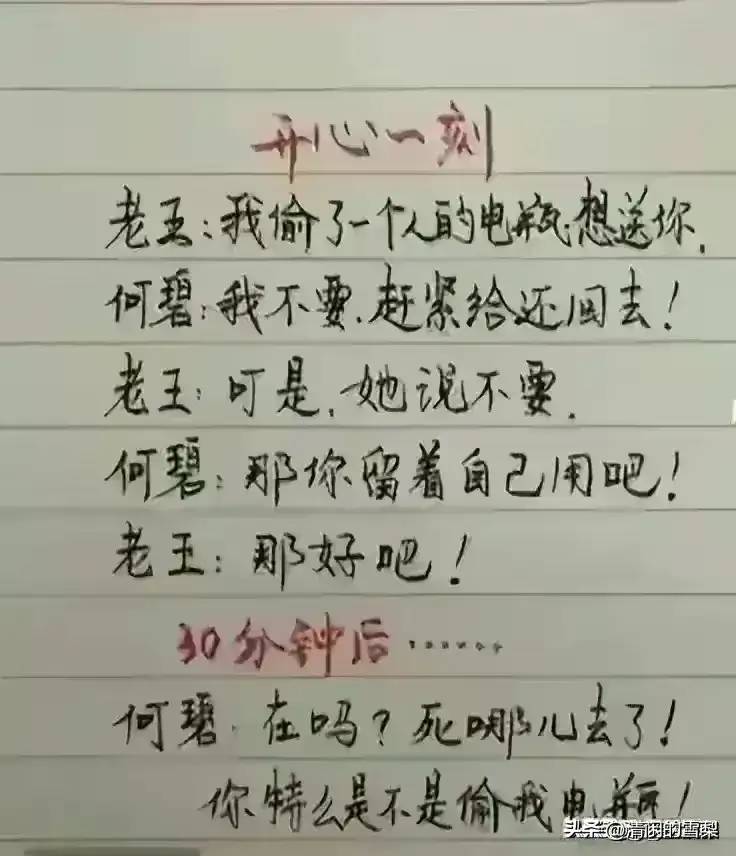 开心一刻
老王:我偷了一个人的电瓶想送你.
何碧:我不要.赶紧给还回去!
老王:可是.她说不要.
何碧:那你留着自己用吧!
老王:那好吧!
30分钟后……
何碧.在吗?死哪儿去了!
你特么是不是偷我电瓶!
头条@清闲的雪梨